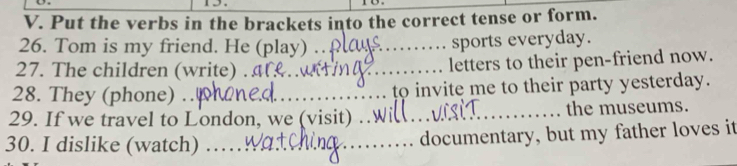 V. Put the verbs in the brackets into the correct tense or form.
26. Tom is my friend. He (play) ..plays........... sports everyday.
27. The children (write) .are..writing........... letters to their pen-friend now.
28. They (phone) ..phoned................ to invite me to their party yesterday.
29. If we travel to London, we (visit) ..will...visit............ the museums.
30. I dislike (watch) .....watching........... documentary, but my father loves it